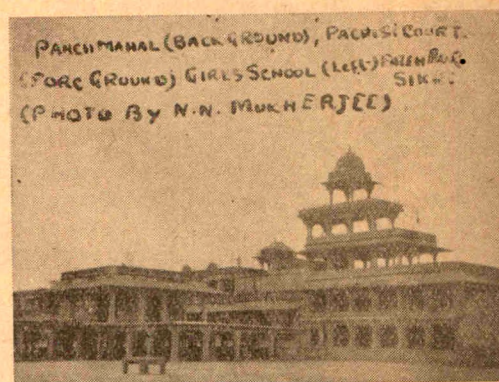 PANCH MAHAL (BACK GROUND), PACHISI COURT.
(FORE GROUND) GIRLS SCHOOL (Left) FATEH PUR.
SIKRI
(PHOTO By N.N. MUKHERJEE)